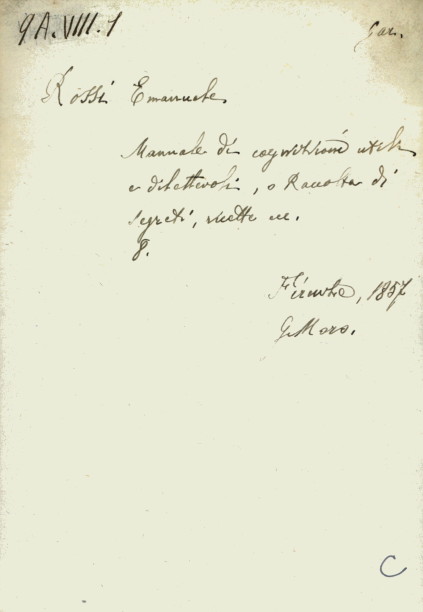 9A.VIII.1
Gar.
Rossi Emanuele
Manuale di cognizioni utili
e dilettevoli, o Raccolta di
segreti, ricette ec.
8.
Firenze, 1857
G. Moro.
C